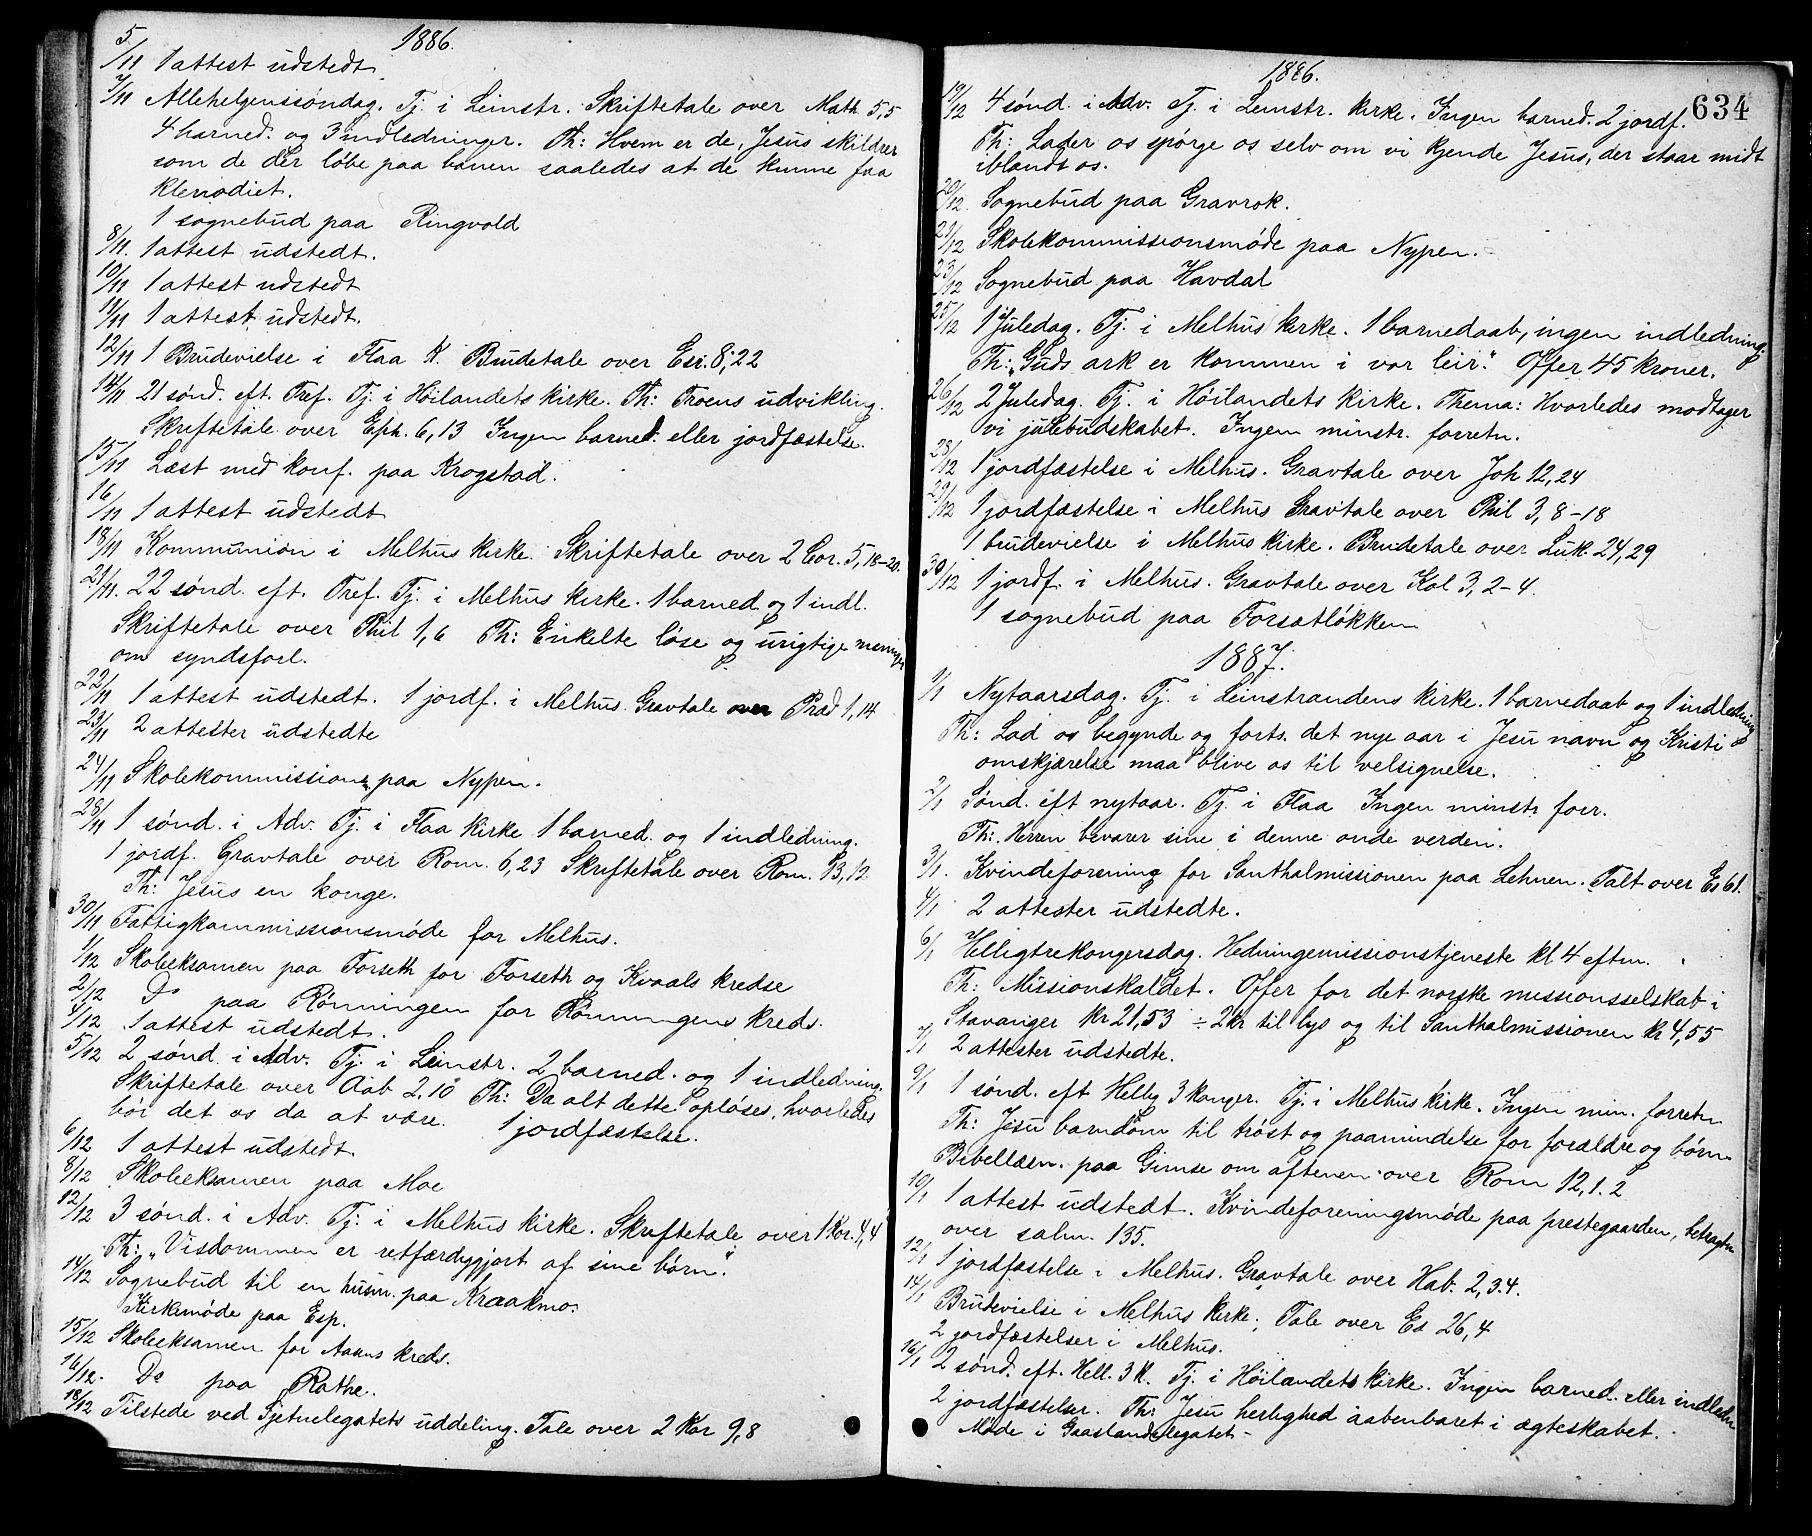 1886.
5/11 1 attest udstedt.
7/11 Allehelgenssøndag. Tj. i Leinstr. Skriftetale over Math 5,5
4 barned. og 3 indledninger. Th: Hvem er de, Jesus skildrer
som de der løbe paa banen saaledes at de kunne faa
klenodiet.
1 sognebud paa Ringvold
8/11. 1 attest udstedt.
10/11 1 attest udstedt
11/11 1 attest udstedt.
12/11 1 Brudevielse i Flaa K. Brudetale over Esr. 8,22
14/11 21 sønd. eft. Tref. Tj. i Höilandets kirke. Th: Troens udvikling.
Skriftetale over Eph. 6,13 Ingen barned. eller jordfæstelse.
15/11 Læst med konf. paa Krogstad.
16/11 1 attest udstedt
18/11 Kommunion i Melhus kirke. Skriftetale over 2 Cor. 5,18-20.
21/11. 22 sønd. eft. Tref. Tj. i Melhus kirke. 1 barned og 1 indl.
Skriftetale over Phil 1,6 Th: Enkelte løse og urigtige meninger
om syndsforl.
22/11 1 attest udstedt. 1 jordf. i Melhus. Gravtale over Præd 1,14
23/11 2 attester udstedte
24/11 Skolekommission paa Nypen.
28/11 1 sønd. i Adv. Tj. i Flaa kirke 1 barned. og 1 indledning.
1 jordf. Gravtale over Rom. 6,23 Skriftetale over Rom. 13,12
Th: Jesus en konge.
30/11 Fattigkommissionsmøde for Melhus.
1/12 Skoleeksamen paa Forseth for Forseth og Kvaals kredse
2/12 Do paa Rønningen for Rønningens kreds.
4/12 1 attest udstedt.
5/12 2 sønd. i Adv. Tj. i Leinstr. 2 barned. og 1 indledning.
Skriftetale over Aab 2,10 Th: Da alt dette opløses, hvorledes
bør det os da at være. 1 jordfæstelse.
6/12 1 attest udstedt.
8/12 Skoleeksamen paa Moe
12/12 3 sønd. i Adv. Tj. i Melhus kirke. Skriftetale over 1 Kor. 4,4
Th: "Visdommen er retfærdiggjort af sine børn".
14/12 Sognebud til en husm. paa Kraakmo.
Kirkemøde paa Esp.
15/12 Skoleeksamen for Aanns kreds.
16/12. Do paa Rathe.
18/12 Tilstede ved Gjetnelegatets uddeling. Tale over 2 Kor 9,8
634
1886.
19/12 4 sønd. i Adv. Tj. i Leinstr. kirke. Ingen barned. 2 jordf.
Th: Lader os spørge os selv om vi kjende Jesus, der staar midt
iblandt os.
20/12. Sognebud paa Gravrok.
21/12 Skolekommissionsmøde paa Nypen.
23/12 Sognebud paa Havdal
25/12 1 Juledag. Tj. i Melhus kirke. 1 barnedaab, ingen indledning.
Th: "Guds ark er kommen i vor leir". Offer 45 kroner.
26/12 2 Juledag. Tj. i Höilandets kirke. Thema: Hvorledes modtager
vi julebudskabet. Ingen minstr. forretn.
28/12 1 jordfæstelse i Melhus. Gravtale over Joh 12,24
29/12 1 jordfæstelse i Melhus Gravtale over Phil 3, 8-18
1 brudevielse i Melhus kirke. Brudetale over Luk. 24,29
30/12 1 jordf. i Melhus. Gravtale over Kol 3, 2-4.
1 sognebud paa Forsætløkken
1887.
1/1 Nytaarsdag. Tj. i Leinstrandens kirke. 1 barnedaab og 1 indledning
Th: Lad os begynde og forts. det nye aar i Jesu navn og Kristi
omskjærelse maa blive os til velsignelse.
2/1 Sønd. eft nytaar. Tj. i Flaa Ingen minstr. forr.
Th: Herren bevarer sine i denne onde verden.
3/1. Kvindeforening for Santhalmissionen paa Lehnen. Talt over Es 61.
4/1 2 attester udstedte.
6/1 Helligtrekongersdag. Hedningemissionstjeneste kl 4 eftm.
Th: Missionskaldet. Offer for det norske missionsselskab i
Stavanger kr 21,53 ÷ 2 kr til lys og til Santhalmissionen kr 4,55
7/1 2 attester udstedte.
9/1 1 sønd. eft Hellig 3 konger. Tj. i Melhus kirke. Ingen min. forretn
Th: Jesu barndom til trøst og paamindelse for forældre og børn
Bibellæsn. paa Gimse om aftenen over Rom 12,1.2
10/1 1 attest udstedt. Kvindeforeningsmøde paa prestegaarden, betragtn
over salm. 135.
12/1 1 jordfæstelse i Melhus. Gravtale over Hab. 2,3.4.
14/1 Brudevielse i Melhus kirke. Tale over Es 26,4
2 jordfæstelser i Melhus.
16/1 2 sønd. eft. Hell. 3 K. Tj. i Höilandets kirke. Ingen barned. eller indledn
2 jordfæstelser. Th: Jesu herlighed aabenbaret i ægteskabet.
Møde i Gaaslandslegatet-